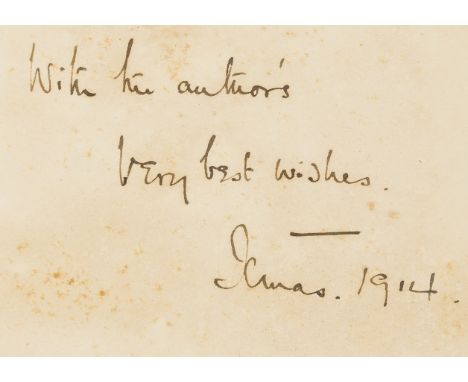 With the author's
very best wishes.
Xmas. 1914.